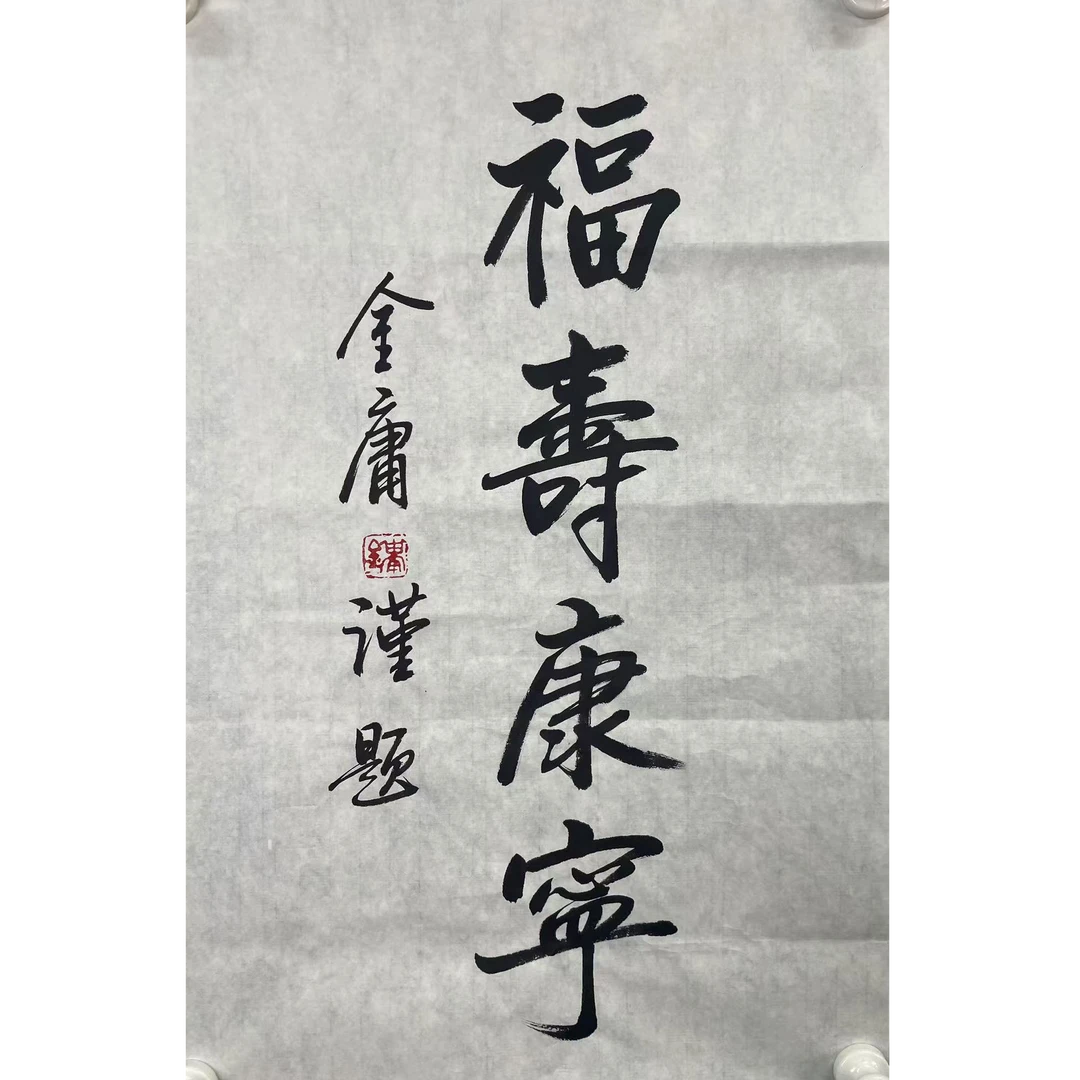 福壽康寧
金庸謹題